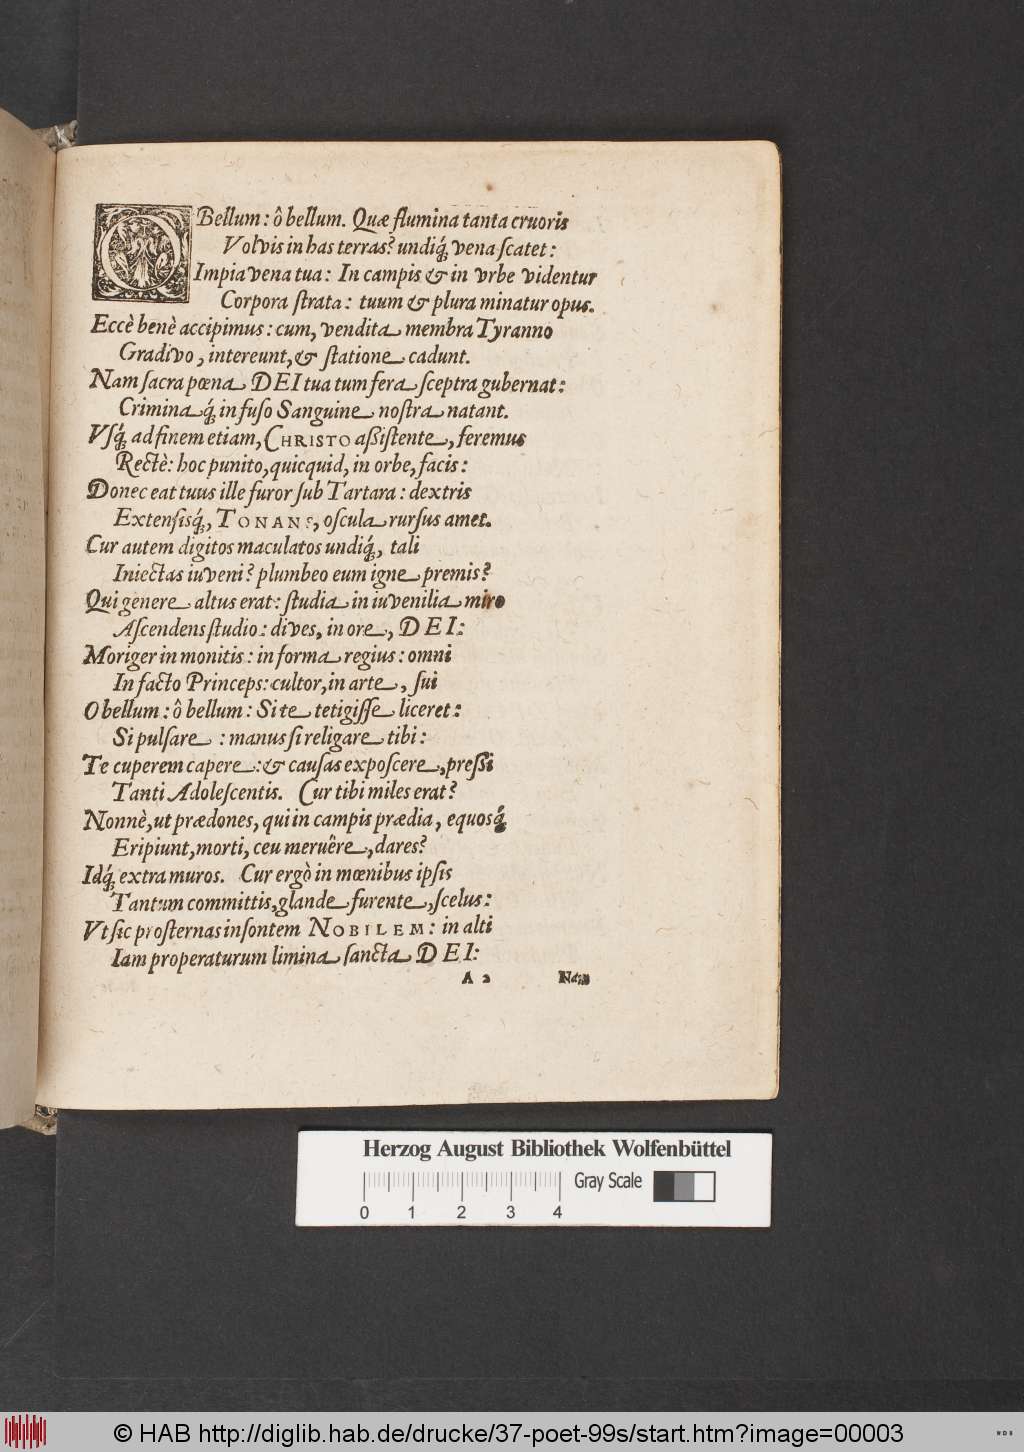 O Bellum: ô bellum. Quæ flumina tanta cruoris
Volvis in has terras? undiq́; vena scatet:
Impia vena tua: In campis & in vrbe videntur
Corpora strata: tuum & plura minatur opus.
Eccè benè accipimus: cum, vendita membra Tyranno
Gradivo, intereunt, & statione cadunt.
Nam sacra pœna DEI tua tum fera sceptra gubernat:
Crimina q́; in fuso Sanguine nostra natant.
Vsq́; ad finem etiam, CHRISTO aßistente, feremus
Rectè: hoc punito, quicquid, in orbe, facis:
Donec eat tuus ille furor sub Tartara: dextris
Extensisq́;, TONANS, oscula rursus amet.
Cur autem digitos maculatos undiq́;, tali
Iniectas iuveni? plumbeo eum igne premis?
Qui genere altus erat: studia in iuvenilia miro
Ascendens studio: dives, in ore, DEI:
Moriger in monitis: in forma regius: omni
In facto Princeps: cultor, in arte, sui
O bellum: ô bellum: Si te tetigisse liceret:
Si pulsare: manus si religare tibi:
Te cuperem capere: & causas exposcere, preßi
Tanti Adolescentis. Cur tibi miles erat?
Nonnè, ut prædones, qui in campis prædia, equosq́;
Eripiunt, morti, ceu meruêre, dares?
Idq́; extra muros. Cur ergò in mœnibus ipsis
Tantum committis, glande furente, scelus:
Vt sic prosternas insontem NOBILEM: in alti
Iam properaturum limina sancta DEI:
A 2 Nam
Herzog August Bibliothek Wolfenbüttel
Gray Scale
0 1 2 3 4
© HAB http://diglib.hab.de/drucke/37-poet-99s/start.htm?image=00003